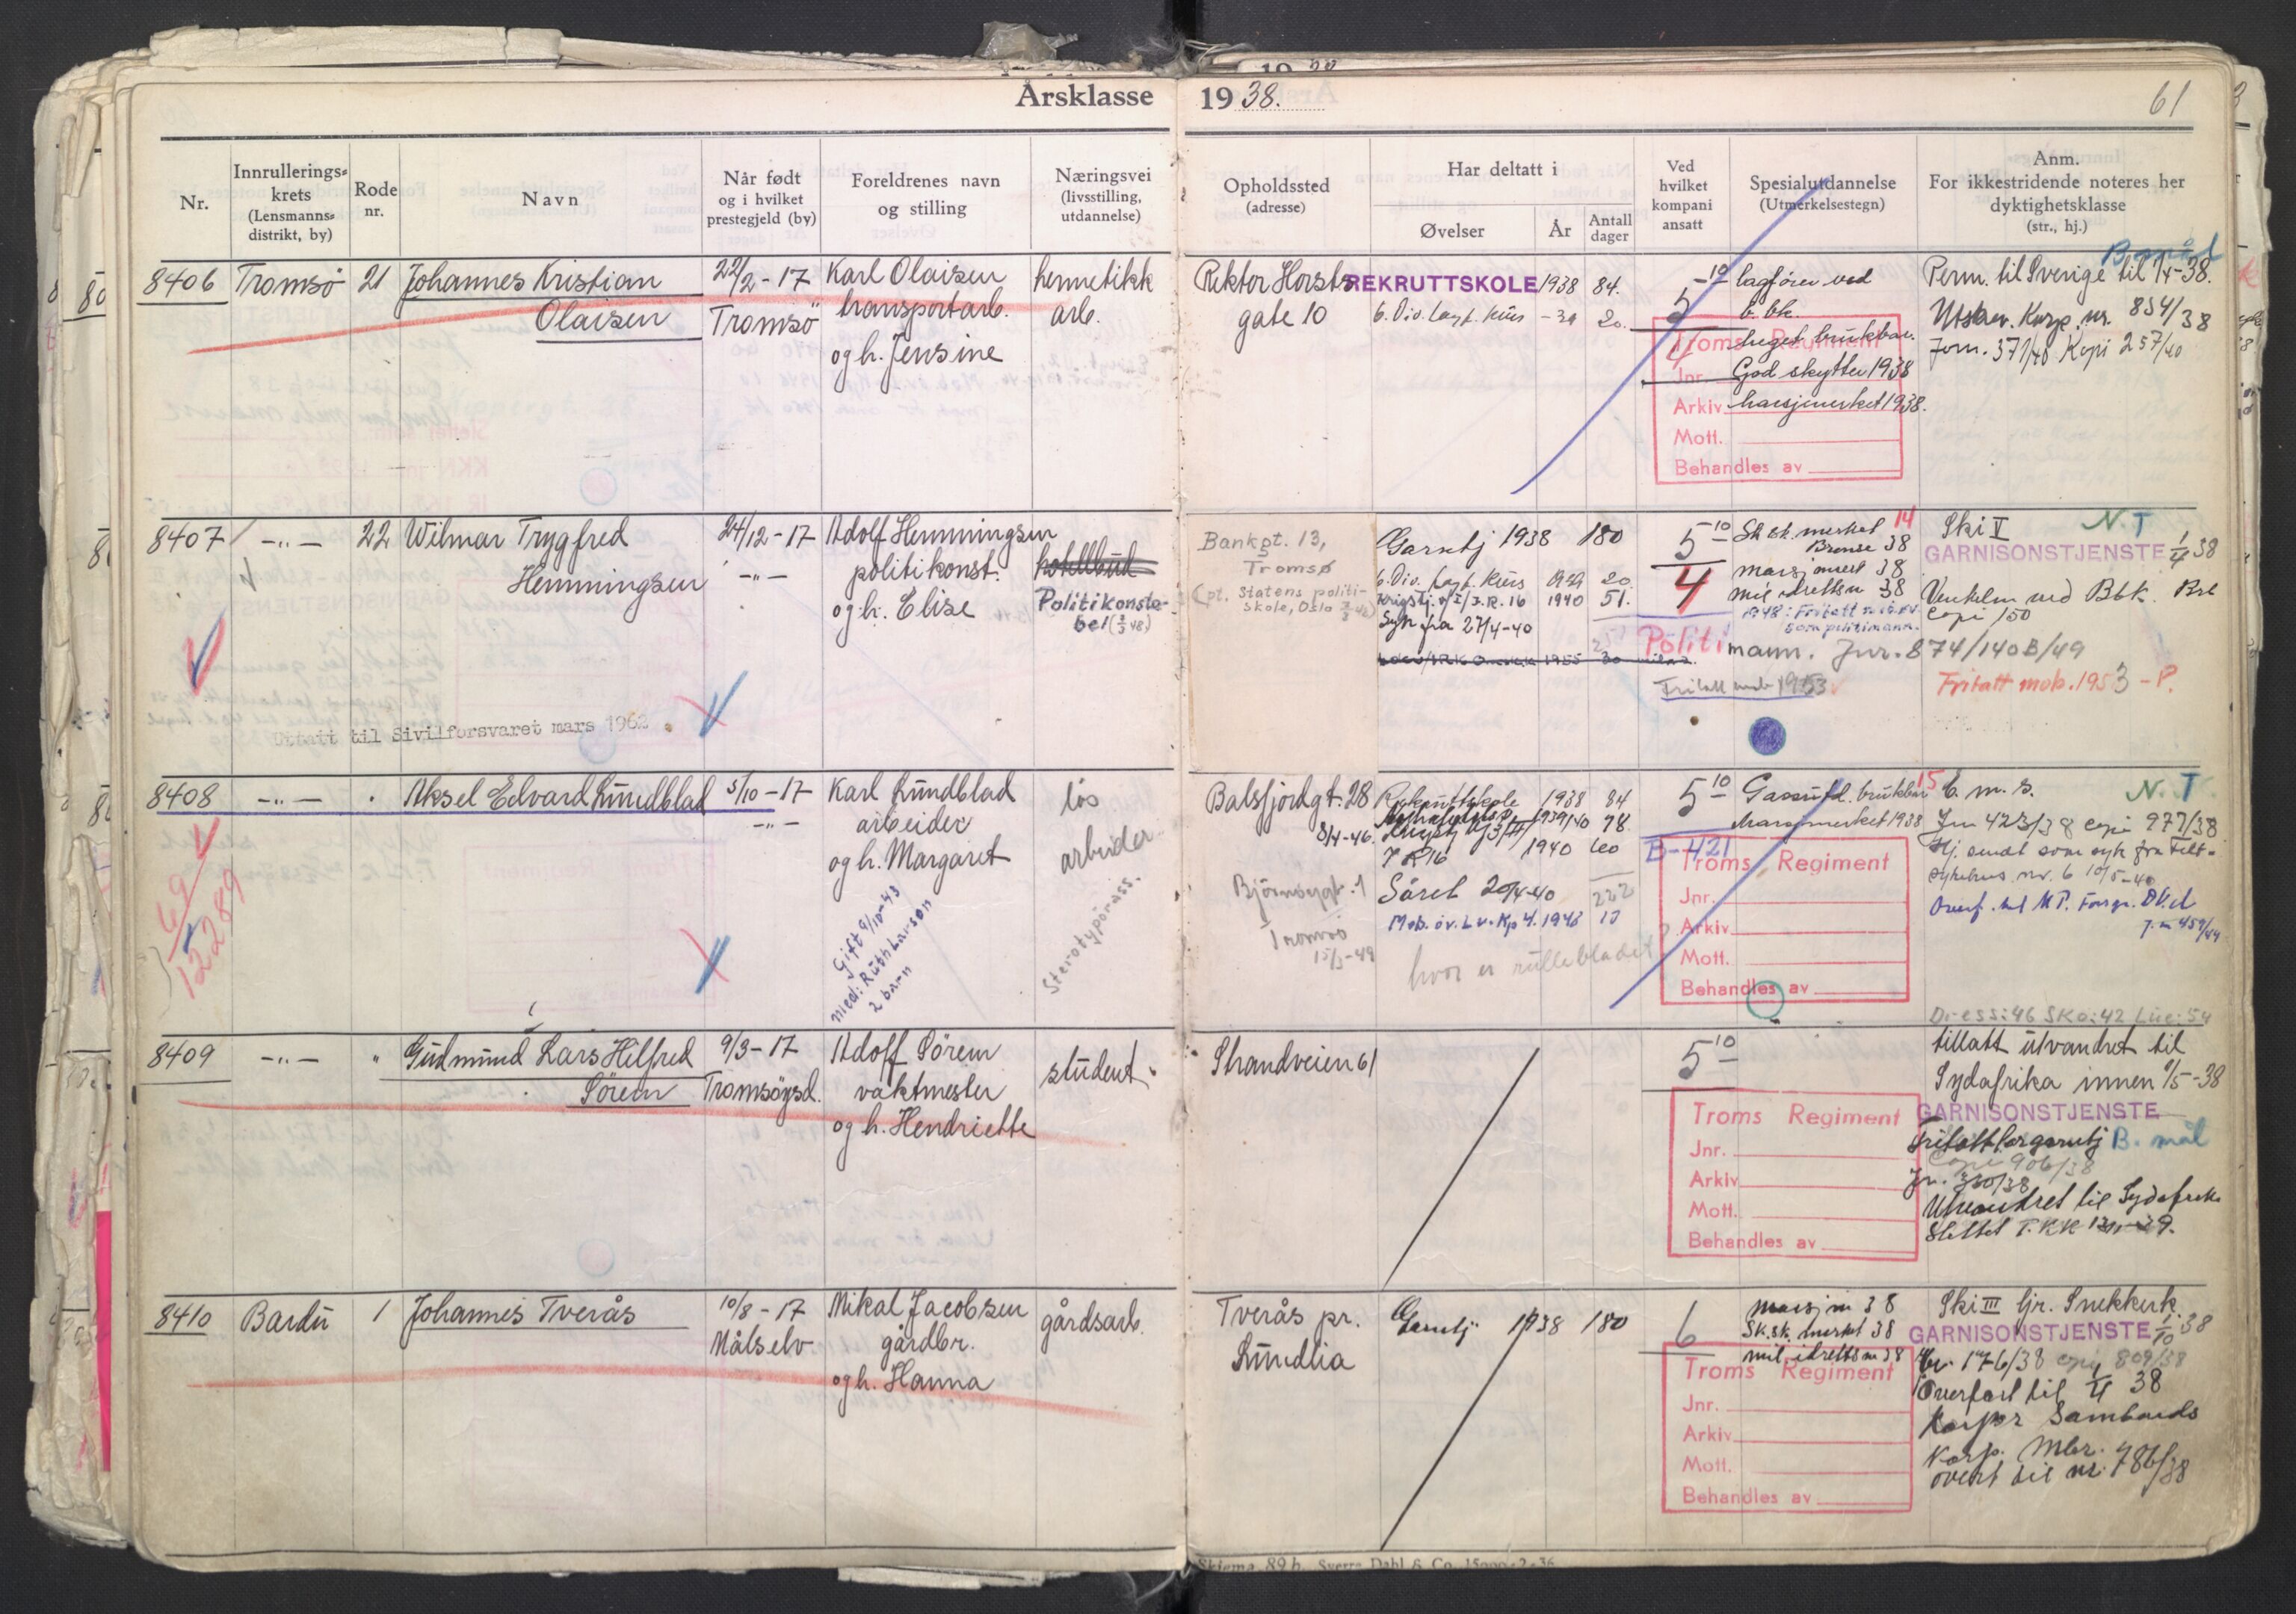 Årsklasse 19 38.
61
Nr.
Innrullerings-
krets
(Lensmanns-
distrikt, by)
Rode
nr.
Navn
Når født
og i hvilket
prestegjeld (by)
Foreldrenes navn
og stilling
Næringsvei
(livsstilling,
utdannelse)
Opholdssted
(adresse)
Har deltatt i
Øvelser
År
Antall
dager
Ved
hvilket
kompani
ansatt
Spesialutdannelse
(Utmerkelsestegn)
Anm.
For ikkestridende noteres her
dyktighetsklasse
(str., hj.)
8406 Tromsø 21 Johannes Kristian
Olaisen
22/2-17
Tromsö
Karl Olaisen
transportarb.
og h. Jensine
hermetikk
arb.
Rektor Horsts
gate 10
REKRUTTSKOLE 1938 84.
6. Div. Lagf. Kurs -39 20.
5 10
lagfører ved
b. bk.
meget brukbar.
God skytter 1938
marsjmerket 1938.
Troms Regiment
Jnr.
Arkiv
Mott.
Behandles av
Perm. til Sverige til 1/4-38.
Utskr. Korp. nr. 834/38
Jorn. 371/40 Kopi 257/40
8407 -"- 22 Wilmar Trygfred
Hemmingsen
24/12-17
-"-
Adolf Hemmingsen
politikonst.
og h. Elise
hotellbud
Politikonsta-
bel (3/3 48)
Uttatt til Sivilforsvaret mars 1962
Bankgt. 13,
Tromsø
(pt. Statens politi-
skole, Oslo
Garntj 1938 180
6. Div. Lagf. Kurs 1939 20.
Krigstj. v/I/I.R. 16 1940 51.
Syk fra 27/4-40
5 10
4
Sk.sk. merket 14
Bronse 38
marsjmerk 38
mil idrettsm 38
1948: Fritatt
som politimann.
Politimann. Jnr. 874/140B/49
Fritatt mob 1953
Ski V
N.T
GARNISONSTJENSTE 38
ved Bbk.
Copi 150
Fritatt mob. 1953 - P.
8408 -"- Aksel Edvard Lundblad
5/10-17
-"-
Karl Lundblad
arbeider
og h. Margaret
Gift 9/10-43
med: Ruth Larson
2 barn
løs
arbeider
Sterotypörass.
69
12289
Balsfjordgt. 28
8/4-46.
Björnöygt. 1
Tromsö
15/3-49
Rekruttskole 1938 84
1939/40 78
I R 16 1940 60
Såret 20/4-40 222
Mob. öv. Lv. Kp 4. 1948 13
hvor er rullebladet?
5 10
B-421
Gassutd. brukbar 15
Marsjmerket 1938
Troms Regiment
Jnr.
Arkiv
Mott.
Behandles av
b. m. s.
N.T
Jnr 423/38 copi 977/38
Hj. sendt som syk fra Felt-
sykehus nr. 6 10/5-40
Dress: 46 Sko: 42 Lue: 54
8409 -"- " Gudmund Lars Hilfred
Sörem
9/3-17
Tromsöysd.
Adolf Sörem
vaktmester
og h. Hendriette
student
Strandveien 61
5 10
Troms Regiment
Jnr.
Arkiv
Mott.
Behandles av
tillatt utvandret til
Sydafrika innen 1/5-38
GARNISONSTJENSTE
Fritatt for garntj B. mål
Copi 906/38
Jn. 360/38
Utvandret til Sydafrika
Slettet T. KK
8410 Bardu 1 Johannes Tverås
10/8-17
Målselv
Mikal Jacobsen
gårdbr.
og h. Hanna
gårdsarb.
Tverås pr.
Lundlia
Garntj 1938 180
6
marsjm 38
Sk.sk. merket 38
mil idrettsm 38
Troms Regiment
Jnr.
Arkiv
Mott.
Behandles av
Ski III ljr. Snekkerk.
GARNISONSTJENSTE 1/10 38
176/38 copi 809/38
Overført til 38
Korp. Mbr.
overt til nr. 786/38
Skjema 89 b. Sverre Dahl & Co. 15000-2-36